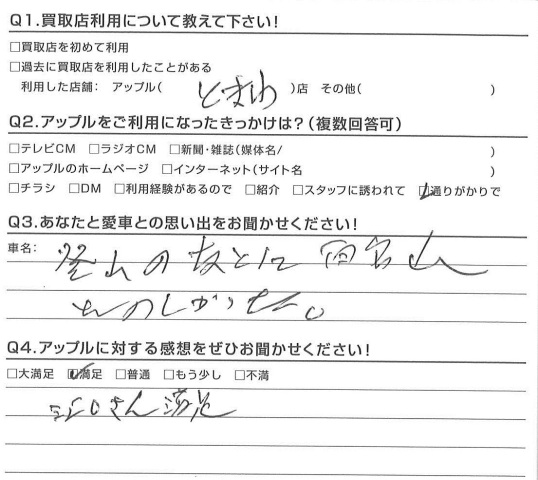 Q1.買取店利用について教えて下さい!
□買取店を初めて利用
□過去に買取店を利用したことがある
利用した店舗: アップル( )店 その他( )
Q2.アップルをご利用になったきっかけは?(複数回答可)
□テレビCM □ラジオCM □新聞・雑誌(媒体名/ )
□アップルのホームページ □インターネット(サイト名 )
□チラシ □DM □利用経験があるので □紹介 □スタッフに誘われて ☑通りがかりで
Q3.あなたと愛車との思い出をお聞かせください!
車名: 登山の友として
たのしかった。
Q4.アップルに対する感想をぜひお聞かせください!
□大満足 ☑満足 □普通 □もう少し □不満
満足